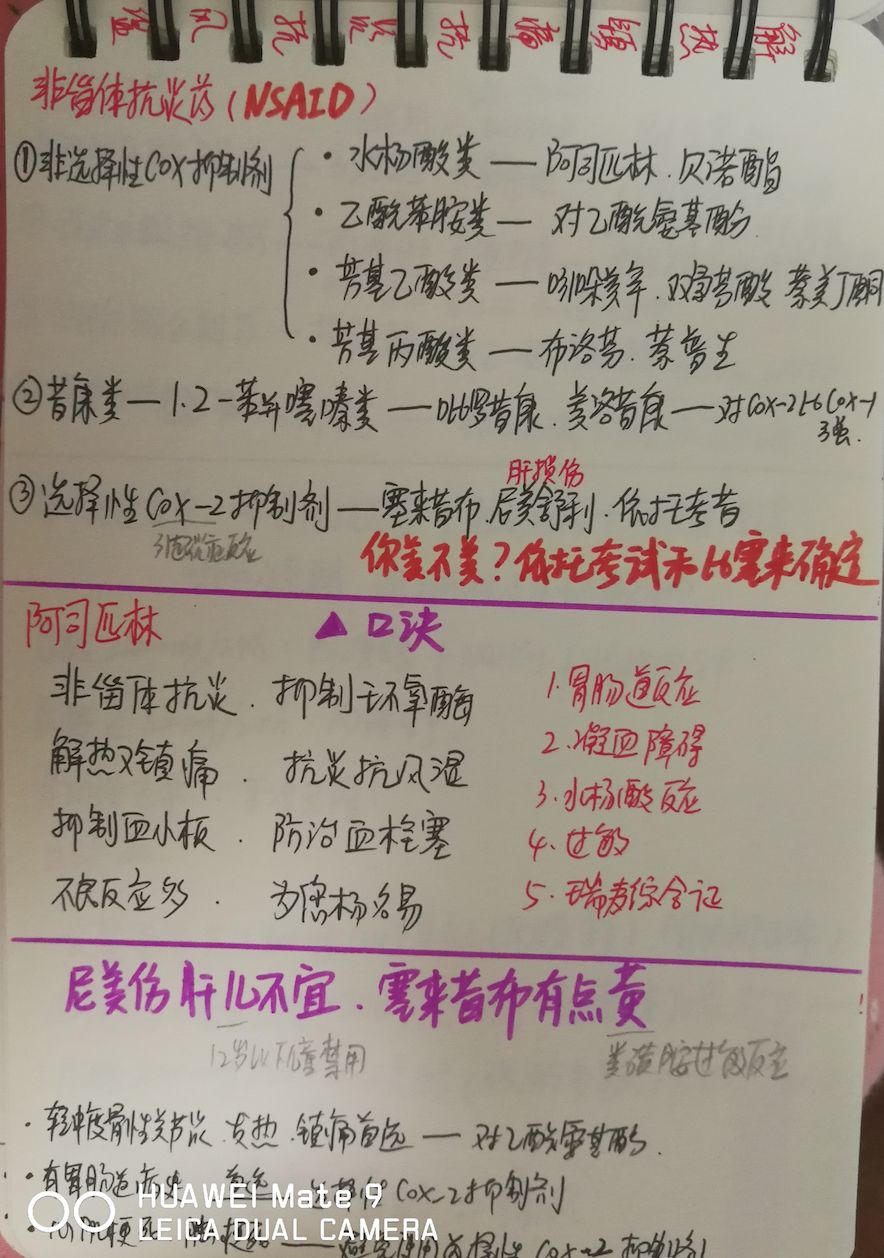 解热镇痛抗炎抗风湿
非甾体抗炎药（NSAID）
①非选择性COX抑制剂
· 水杨酸类 — 阿司匹林．贝诺酯
· 乙酰苯胺类 — 对乙酰氨基酚．
· 芳基乙酸类 — 吲哚美辛．双氯芬酸 萘美丁酮
· 芳基丙酸类 — 布洛芬．萘普生
②昔康类 — 1.2-苯并噻嗪类 — 吡罗昔康．美洛昔康 — 对Cox-2比Cox-1
强．
肝损伤
③选择性Cox-2抑制剂 — 塞来昔布．尼美舒利．依托考昔
你美不美？依托考试示比塞来确定
阿司匹林 ▲口诀
非甾体抗炎．抑制环氧酶
解热又镇痛．抗炎抗风湿
抑制血小板．防治血栓塞
不良反应多．为您扬名易
1.胃肠道反应
2.凝血障碍
3.水杨酸反应
4.过敏
5.瑞夷综合证
尼美伤肝儿不宜．塞来昔布有点黄
12岁以下儿童禁用
类磺胺过敏反应
· 轻中度骨性关节炎．发热．镇痛首选 — 对乙酰氨基酚．
· 有胃肠道 首选 选择性Cox-2抑制剂
· 心肌梗死 — 避免使用选择性Cox-2抑制剂
HUAWEI Mate 9
LEICA DUAL CAMERA